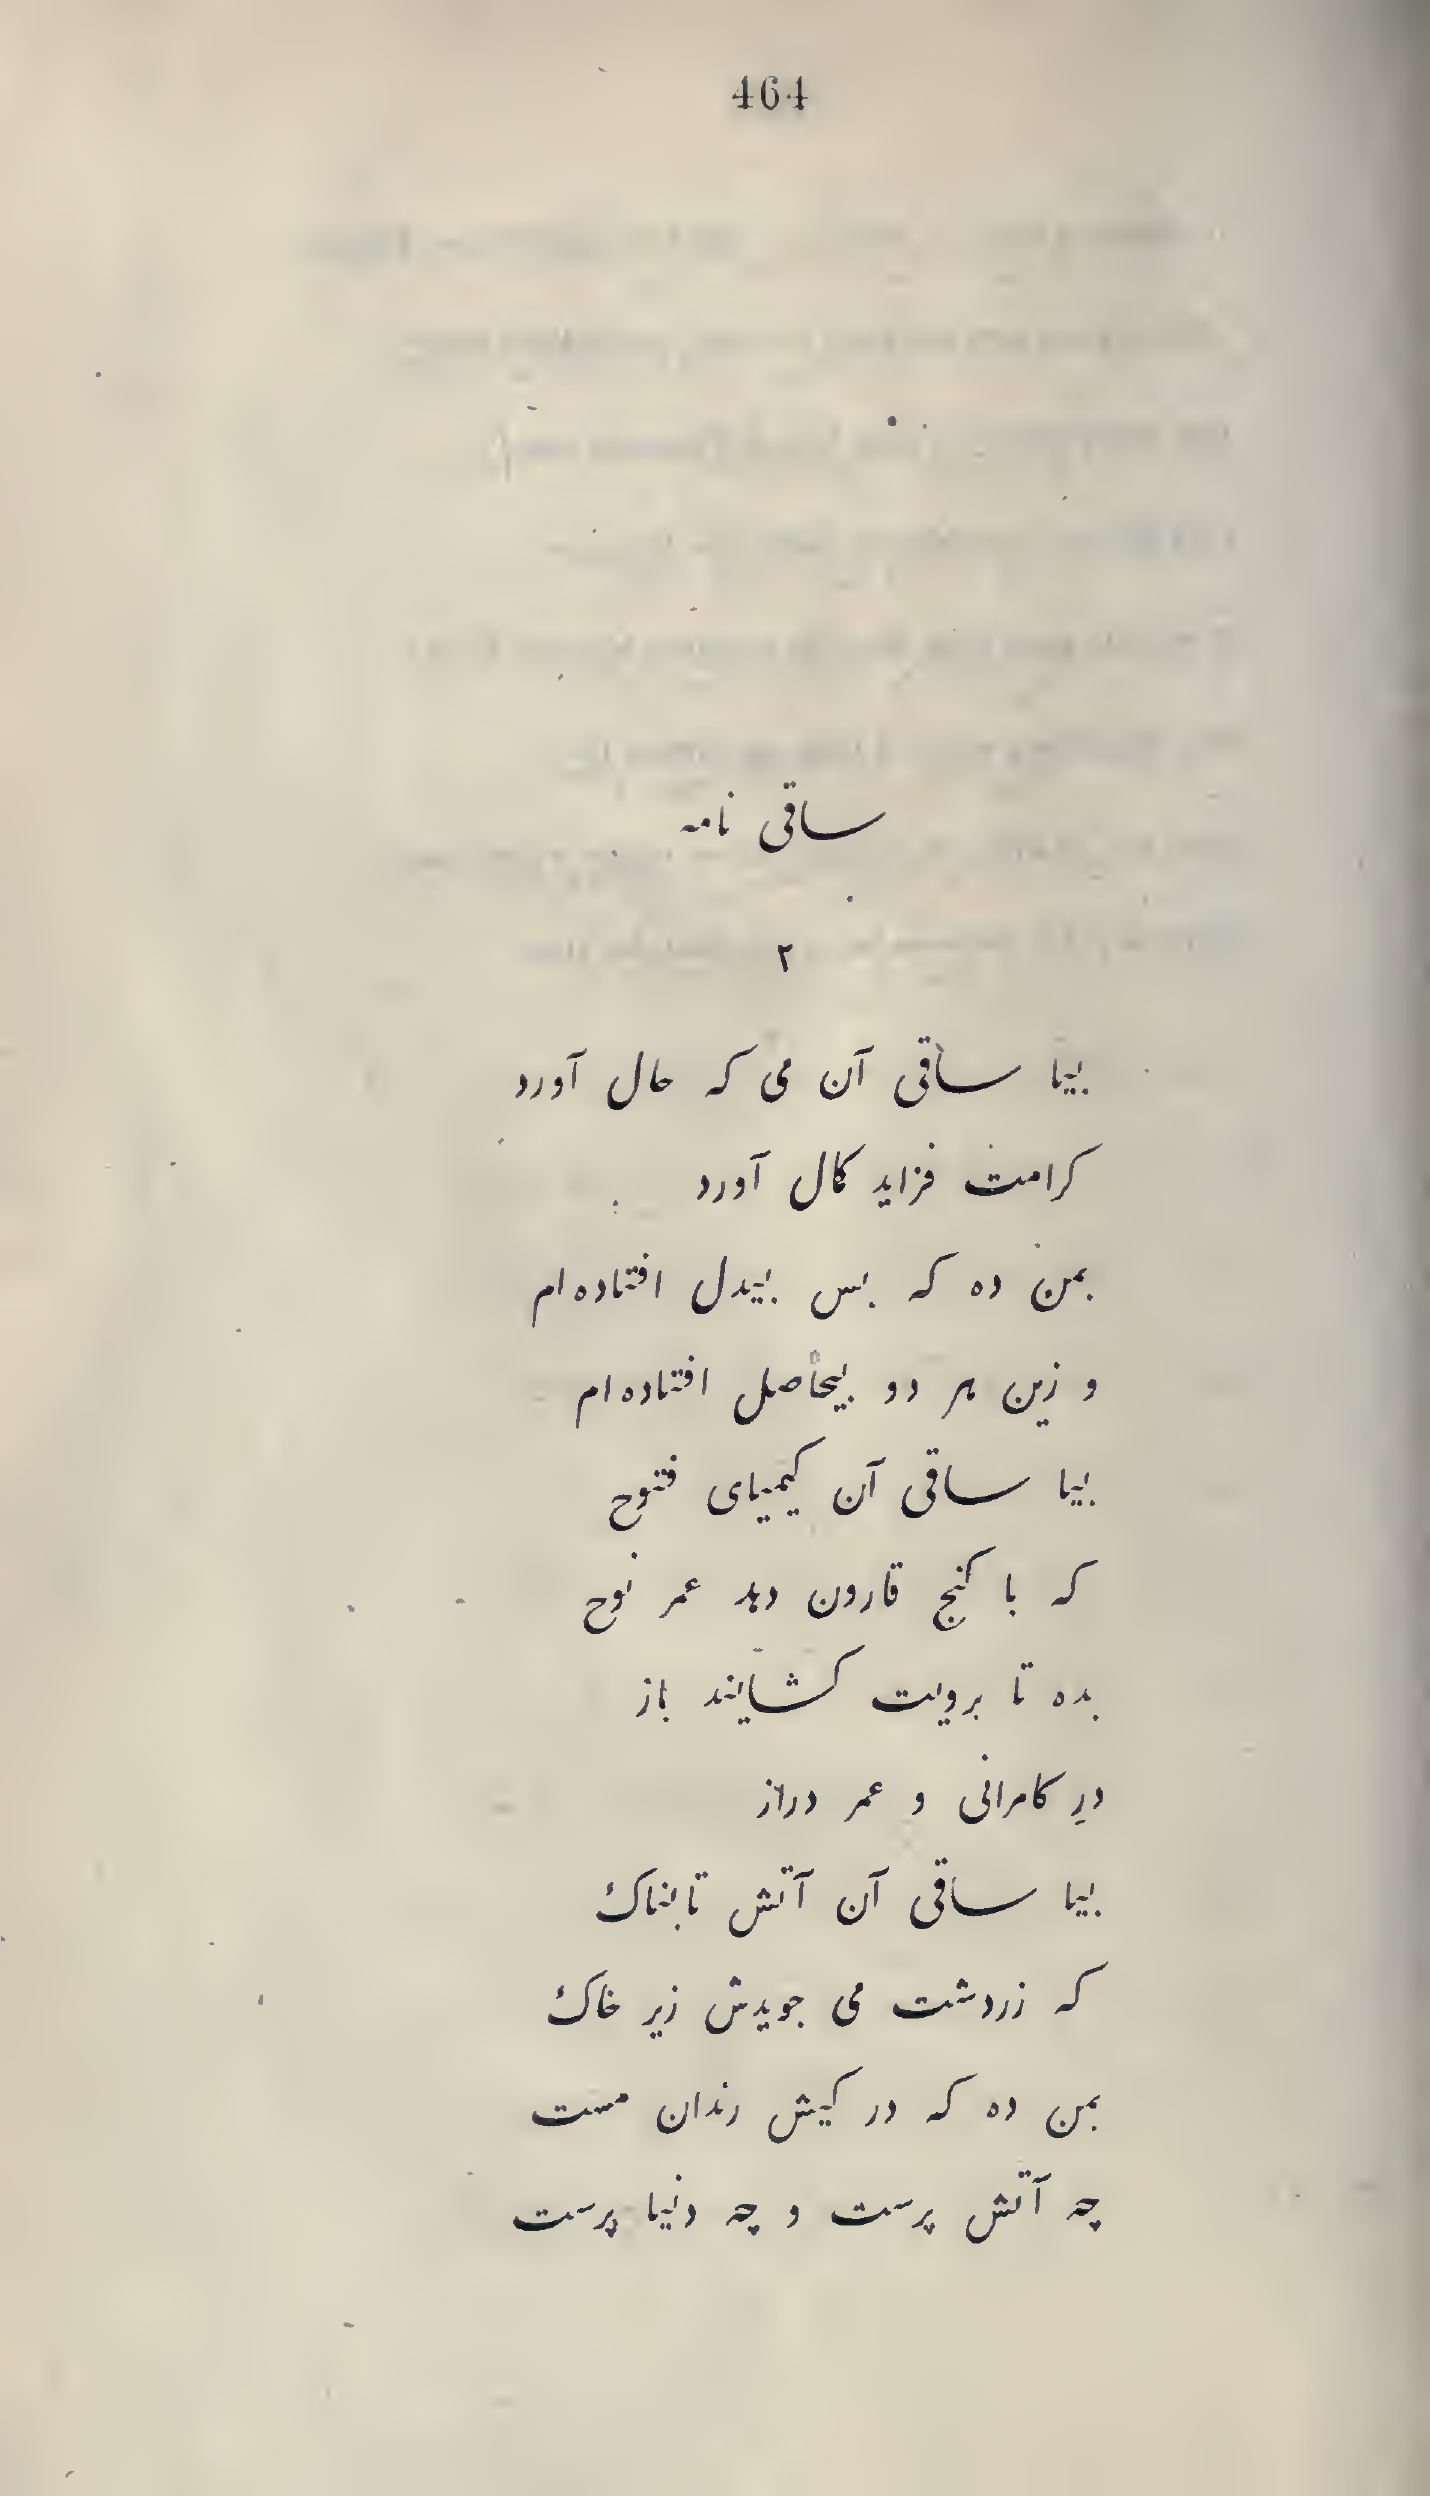 464
ساقی نامه
۲
بیا ساقی آن می که حال آورد
کرامت فزاید کمال آورد
بمن ده که بس بیدل افتاده‌ام
و زین هر دو بیحاصل افتاده‌ام
بیا ساقی آن کیمیای فتوح
که با کنج قارون دهد عمر نوح
بده تا برویت کشایند باز
درِ کامرانی و عمر دراز
بیا ساقی آن آتش تابناک
که زردشت می جویدش زیر خاک
بمن ده که در کیش رندان مست
چه آتش پرست و چه دنیا پرست